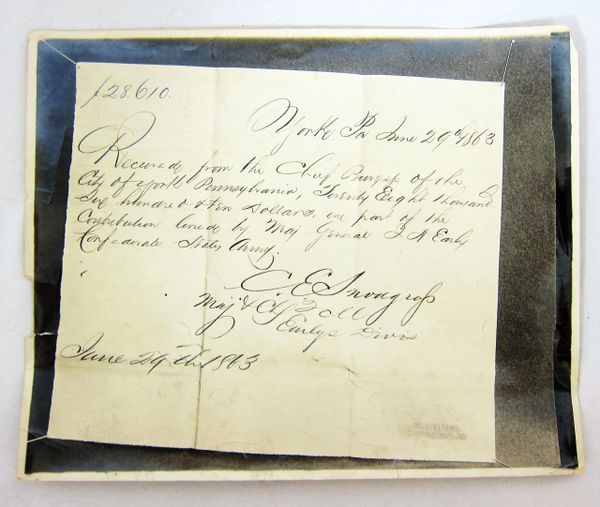 $28.610.
York Pa June 29th 1863
Received from the Chief Burgess of the
City of York Pennsylvania, Twenty Eight thousand
Six hundred & ten Dollars, in part of the
Contribution levied by Maj General J A Early
Confederate States Army.
C E Snodgrass
Maj & Q M
Earlys Divis
June 29th 1863